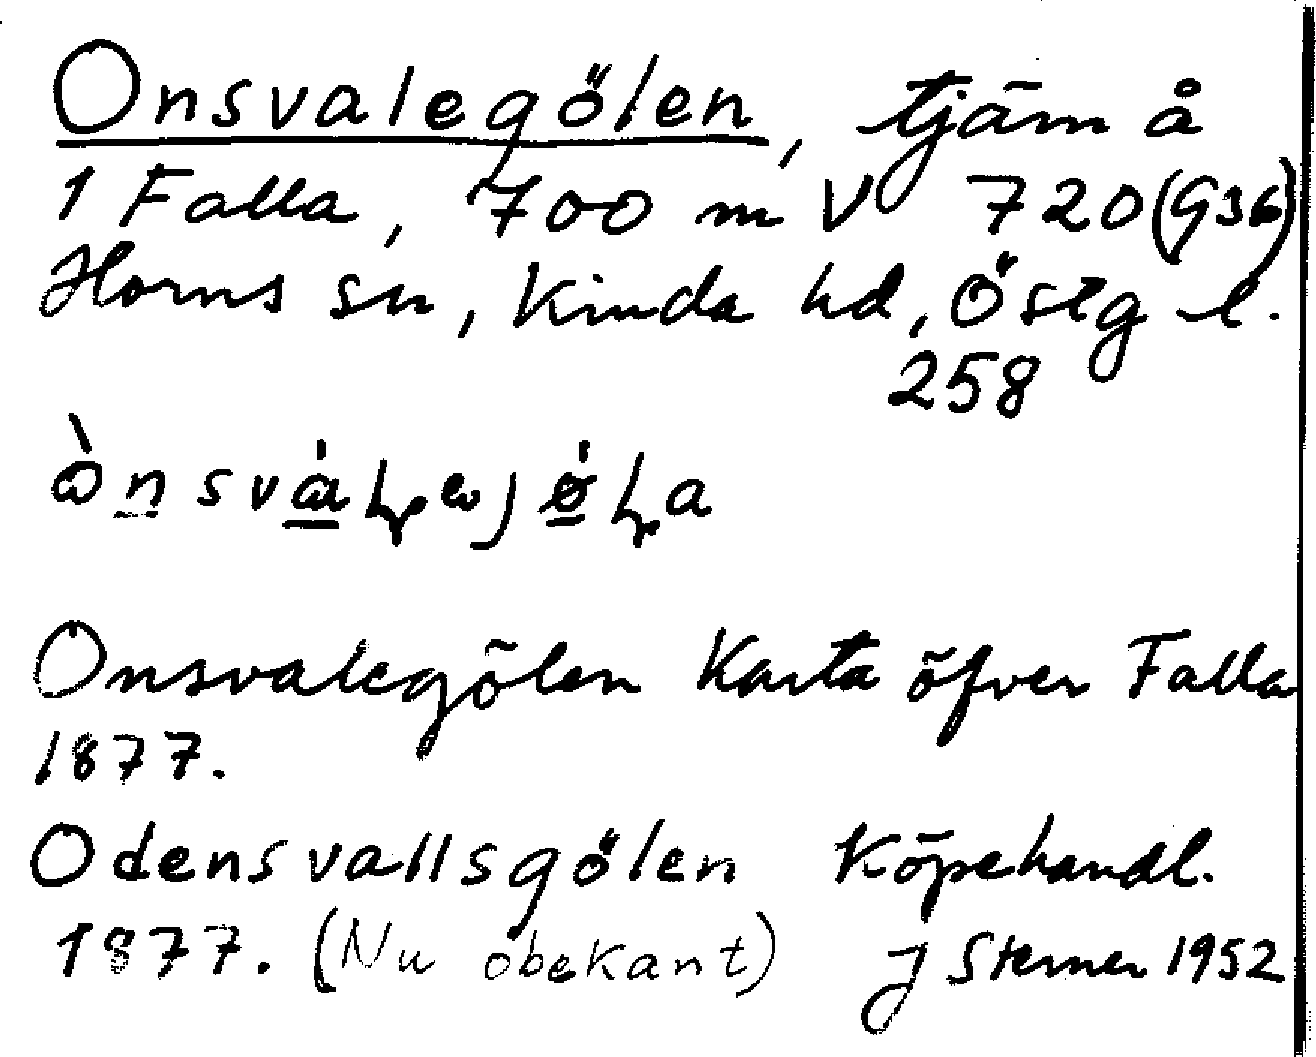 Onsvalegölen, tjärn å
1 Falla, 700 m V 720 (G36)
Horns sn, Kinda hd, Östg l.
258
Onsvalegölen Karta öfver Falla
1877.
Odensvallsgölen Köpehandl.
1877. (Nu obekant) J Sterner 1952